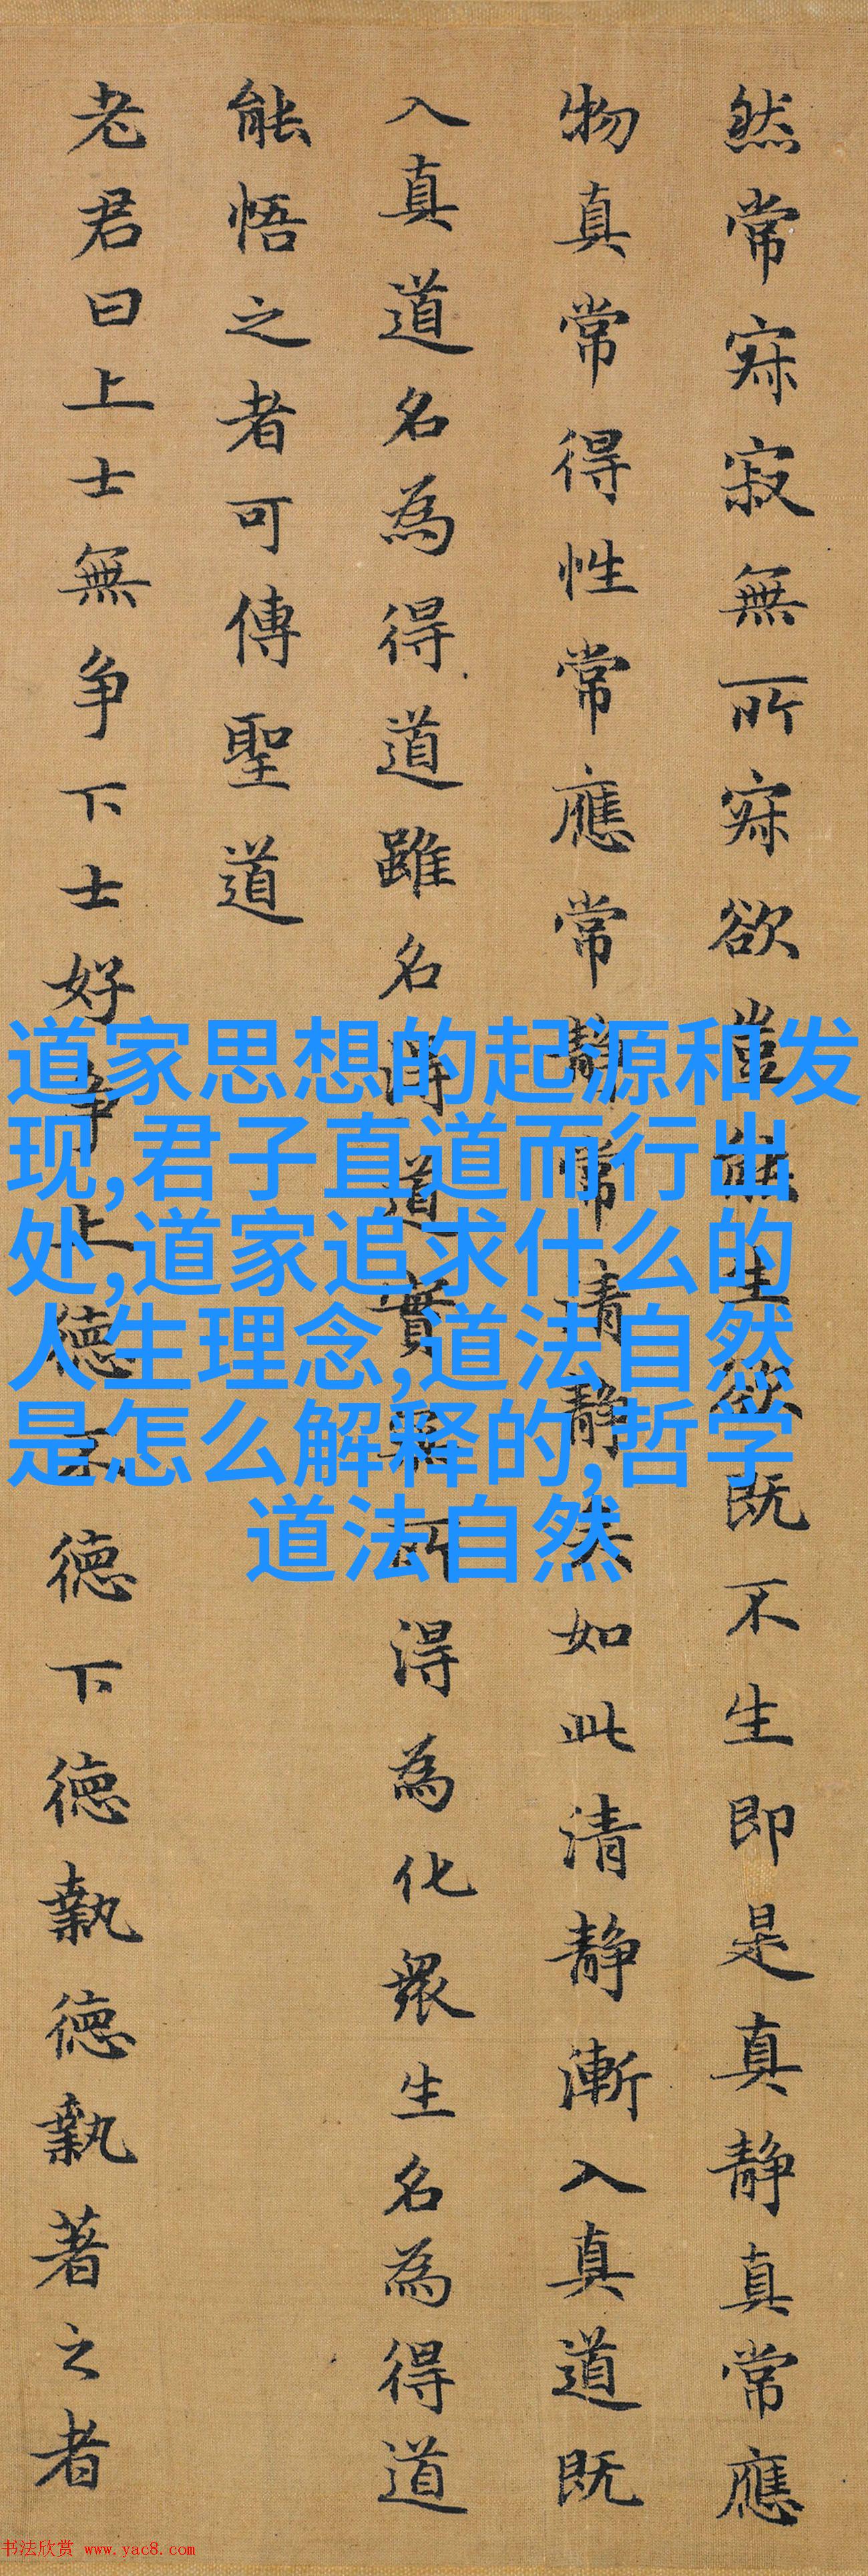 然常寂寂無所寂欲豈能生欲既不生即是真静真常應
物真常得性常應常静常清静矣如此清静漸入真道既
入真道名為得道雖名得道實無所得為化衆生名為得道
能悟之者可傳聖道
老君曰上士無争下士好争上德不德下德執德執著之者
道家思想的起源和发
现,君子直道而行出
处,道家追求什么的
人生理念,道法自然
是怎么解释的,哲学
道法自然
书法欣赏 www.yac8.com